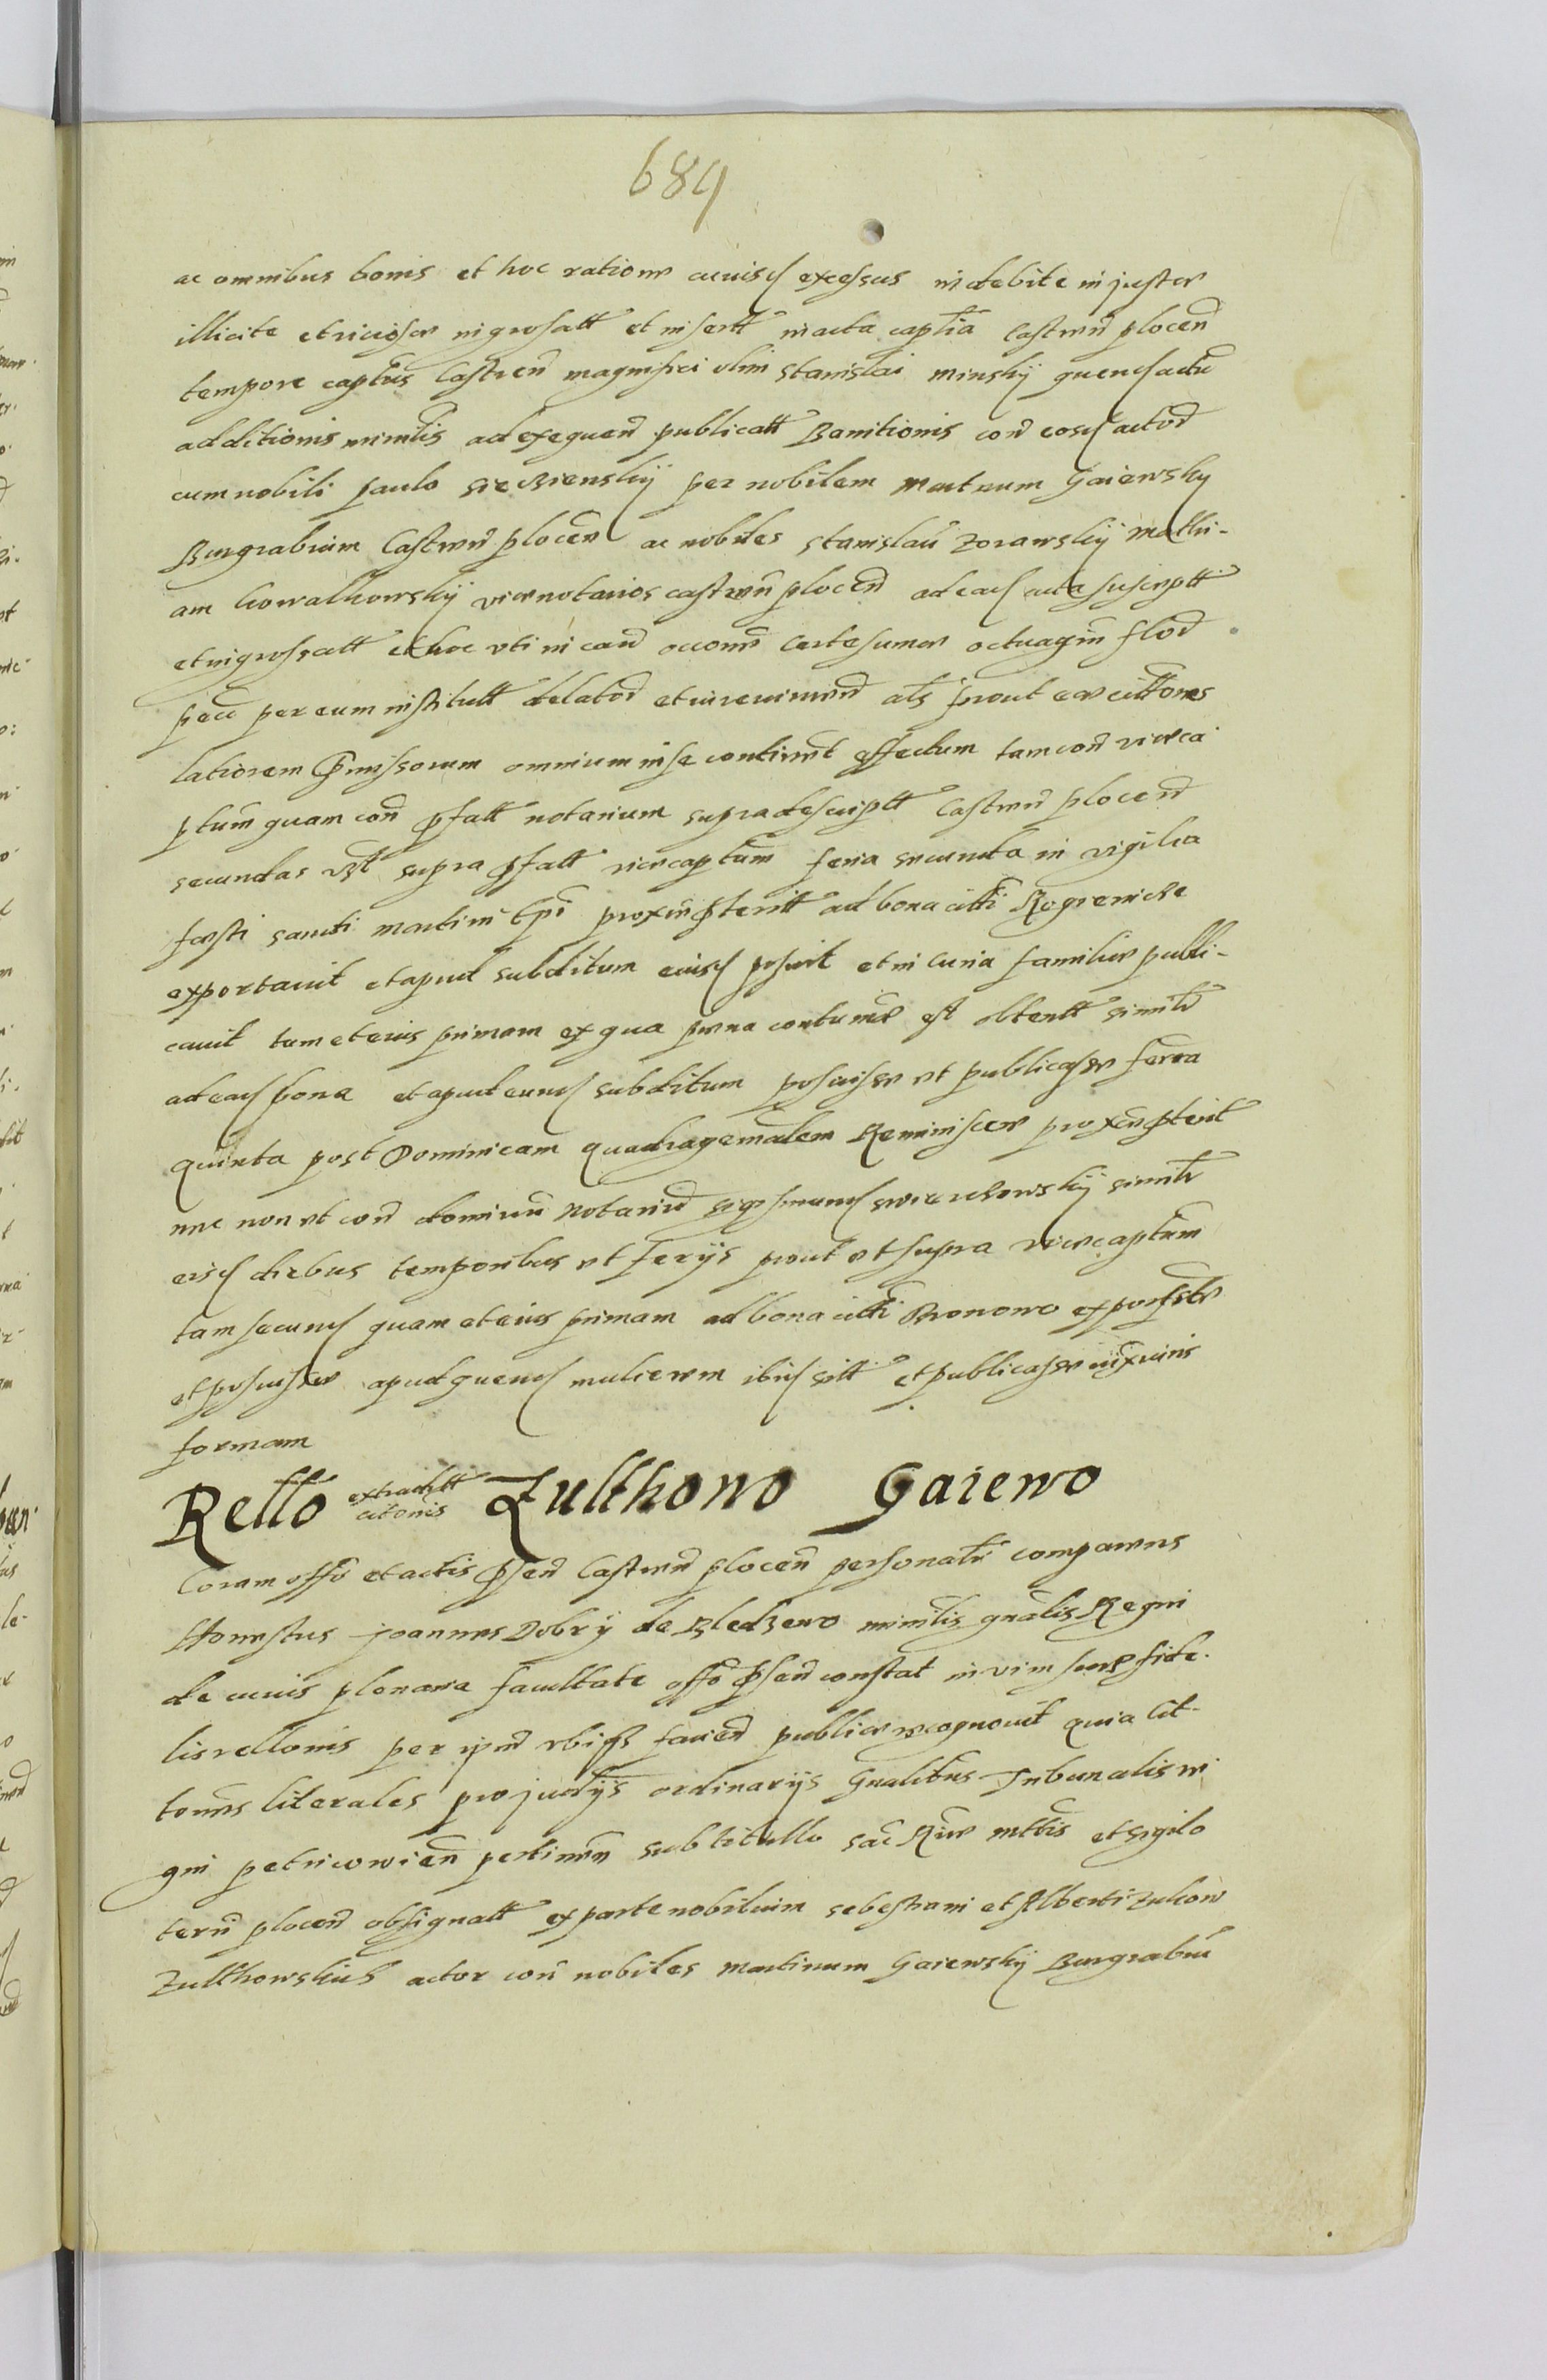 689
ac omnibus bonis et hoc ratione cuiusd excessus indebite injuste
illicite et viciose ingrosatt et insertt in acta captlia Castren plocen
tempore captus Castren magnifici olim Stanislai Minsky quend actu
additionis minilis ad exequen publicatt Banitionis con eosd actor
cum nobili paulo siecBiensky per nobilem Martinum Gaiewsky
Burgrabium Castren plocen ac nobiles Stanislau Zorawsky Mathi-
am kowalkowsky vicenotarios castren plocen ad ead acta suscriptt
et ingrossatt et hoc uti in caus occone certe sumae octuagin flor
pecu per eum institutt delator et in als prout eae cittones
latiorem pmissorum omnium in se continent effectum tam con viceca
ptum quam con pfatt notarium supradescriptt Castren plocen
secundas vt supra pfatt vicecaptum feria secunda in vigilia
festi sancti Martini Epi proxim pteritt ad bona citti Rogienicze
exportavit et apud subditum eiusd posuit et in curia familiae publi-
cavit tam et eius primam ex qua pena contumae est obtentt similr
ad ead bona et apud eund subditum posuisse et publicasse feria
quinta post Dominicam quadragemalem Reminiscere proxim pterit
nec non et con dominu Notariu Sigismund swierczowsky similr
eisd diebus temporibus et ferys prout et supra vicecaptum
tam secund quam et eius primam ad bona citti Bronowo exportasse
et posuisse apud quend mulierem ibid sitt et publicasse iux iuris
formam
Rello extraditt citonis Zulthowo Gaiewo
Coram offo et actis psen Castren plocen personalr comparens
Honestus joannes Dobry de Bledzewo minilis gnalis Regni
de cuius plenaria facultate offo psen constat in vim suae fide-
lis rellonis per ipm ubiqs facien publice recognovit quia cit-
tones literales pro judys ordinarys Gnalibus Tribunalis re-
gni petricowien pertinen sub titullo sac Riae mttis et sigilo
terr plocen obsignatt ex parte nobilium sebestiani et Alberti Zulcow
Zulthowskich actor con nobiles Martinum Gaiewsky Burgrabiu